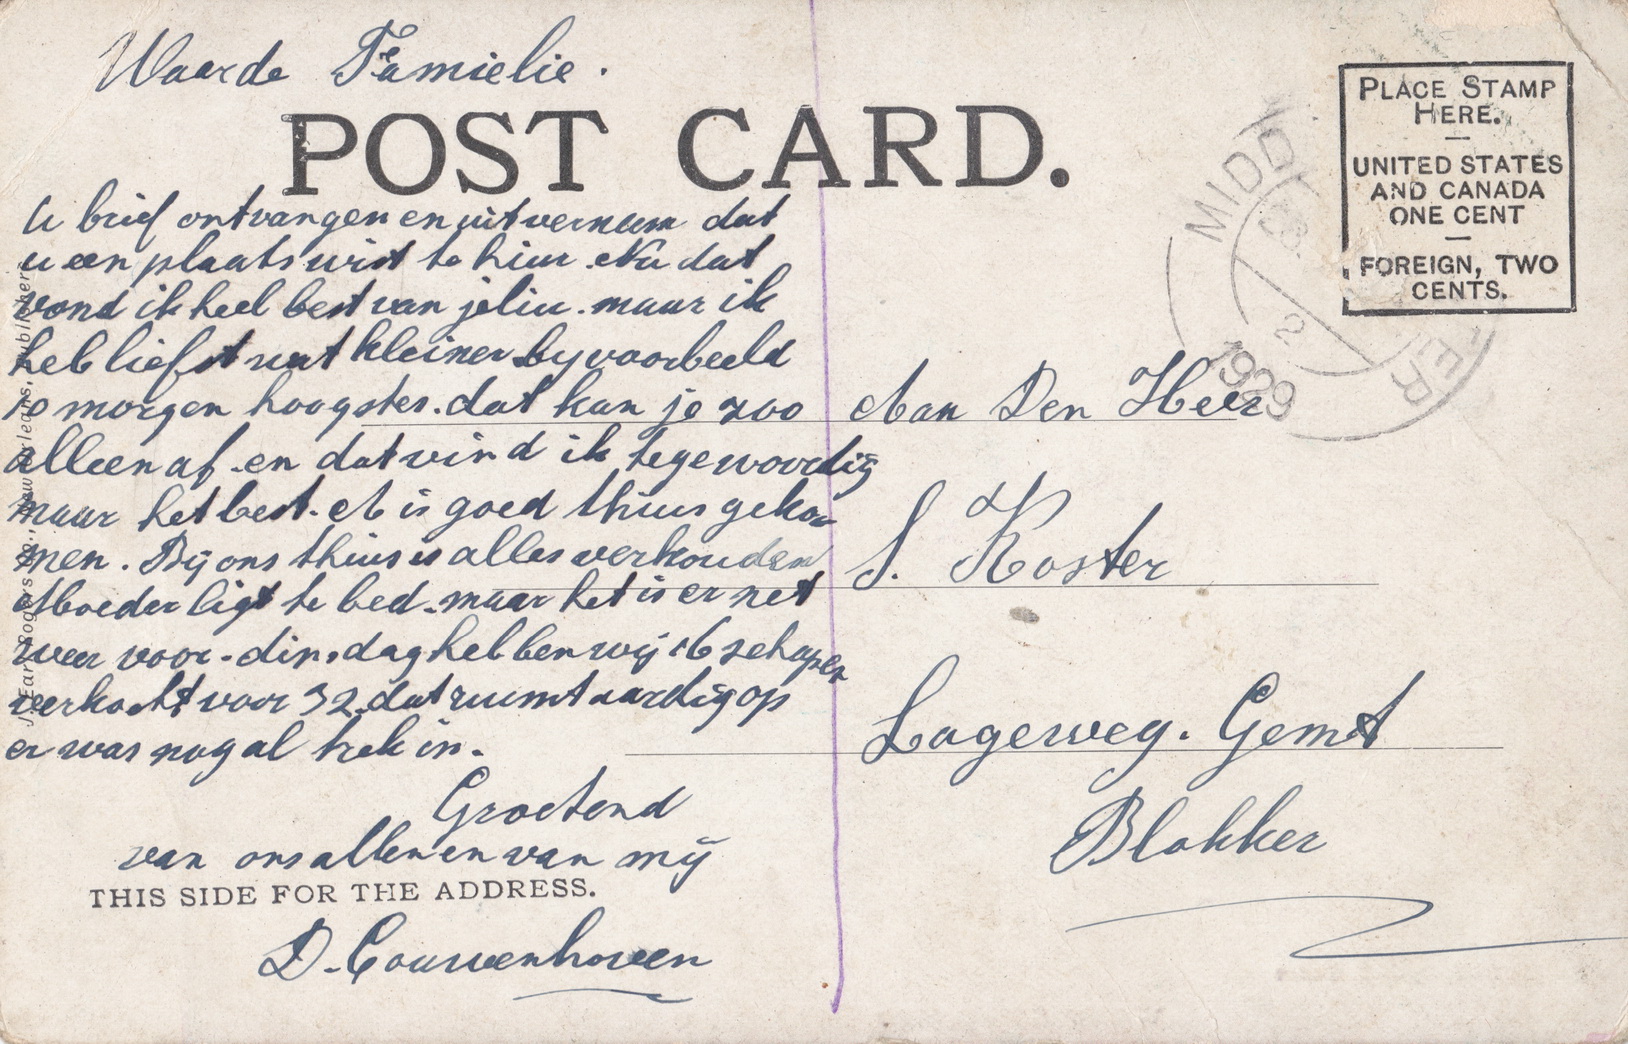 Waarde Famielie.
POST CARD.
U brief ontvangen en uit verneem dat
u een plaats wist te huur. Nu dat
vond ik heel best van jeliu. maar ik
heb liefst wat kleiner byvoorbeeld
10 morgen hoogster. dat kan je zoo
alleen af. en dat vind ik tegewoordig
maar het best. A is goed thuus gekoo
men. Bij ons thuus is alles verkouden
Moeder ligt te bed. maar het is er net
weer voor. dinsdag hebben wij 16 schapen
verkocht voor 32. dat ruimt aardig op
er was nog al trek in.
Groetend
van ons allen en van mij
THIS SIDE FOR THE ADDRESS.
D. Couwenhoven
PLACE STAMP
HERE.
UNITED STATES
AND CANADA
ONE CENT
FOREIGN, TWO
CENTS.
MIDD
2
1929
Aan Den Heer
S. Koster
Lageweg. Gemt
Blokker
New Orleans, Publishers